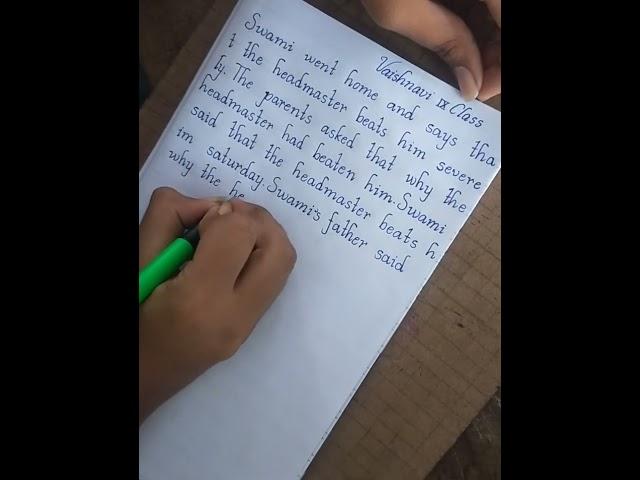 Vaishnavi IX Class
Swami went home and says tha
t the headmaster beats him severe
ly. The parents asked that why the
headmaster had beaten him. Swami
said that the headmaster beats h
im saturday. Swami's father said
why the he